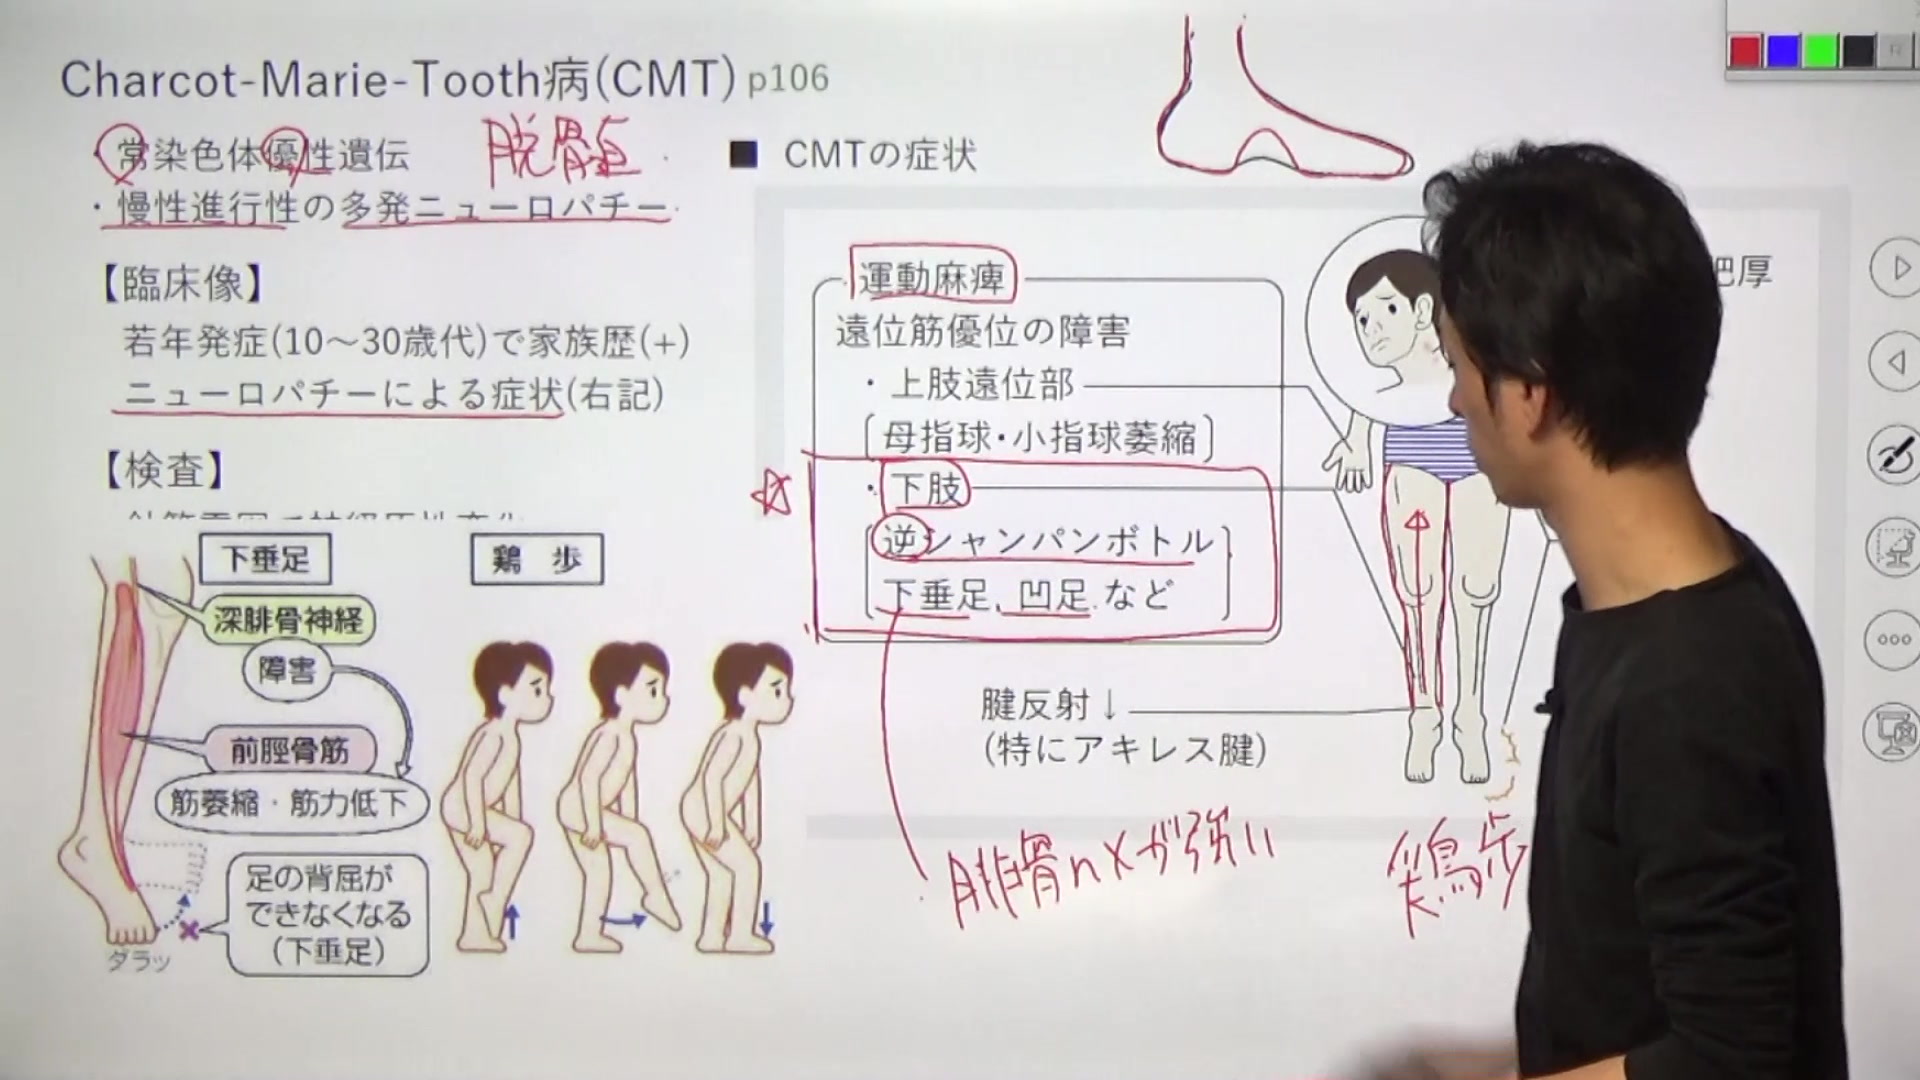 Charcot-Marie-Tooth病(CMT) p106
・常染色体優性遺伝
・慢性進行性の多発ニューロパチー
【臨床像】
若年発症(10～30歳代)で家族歴(+)
ニューロパチーによる症状(右記)
【検査】
下垂足
深腓骨神経
障害
前脛骨筋
筋萎縮・筋力低下
足の背屈が
できなくなる
(下垂足)
ダラッ
鶏 歩
■ CMTの症状
肥厚
運動麻痺
遠位筋優位の障害
・上肢遠位部
[母指球・小指球萎縮]
・下肢
逆シャンパンボトル
下垂足、凹足 など
腱反射↓
(特にアキレス腱)
腓骨n×が強い
鶏歩